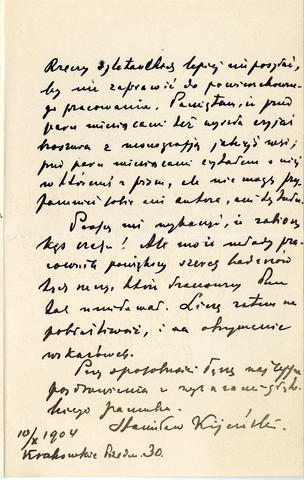 Rzeczy dyletanckiej lepiej nie posyłać,
by nie zaprawić do powierzchowne-
go pracowania. Pamiętam, iż przed
paru miesiącami też wyszła czyjaś
broszura z monografią jakiejś wsi;
przed paru miesiącami czytałem o niej
w którymś z pism, ale nie mogę przy-
pomnieć sobie ani autora, ani tytułu.
Proszę mi wybaczyć, iż zabieram
czasu! Ale może młody pra-
cownik powiększy szereg badaczów
tych rzeczy, które Pan
tak umiłował. Liczę zatem na
pobłażliwość, i na otrzymanie
wskazówek.
Przy sposobności łączę
pozdrowienia z wyrazami głębo-
kiego szacunku.
Stanisław
10/X 1904
Krakowskie Przedm. 30.